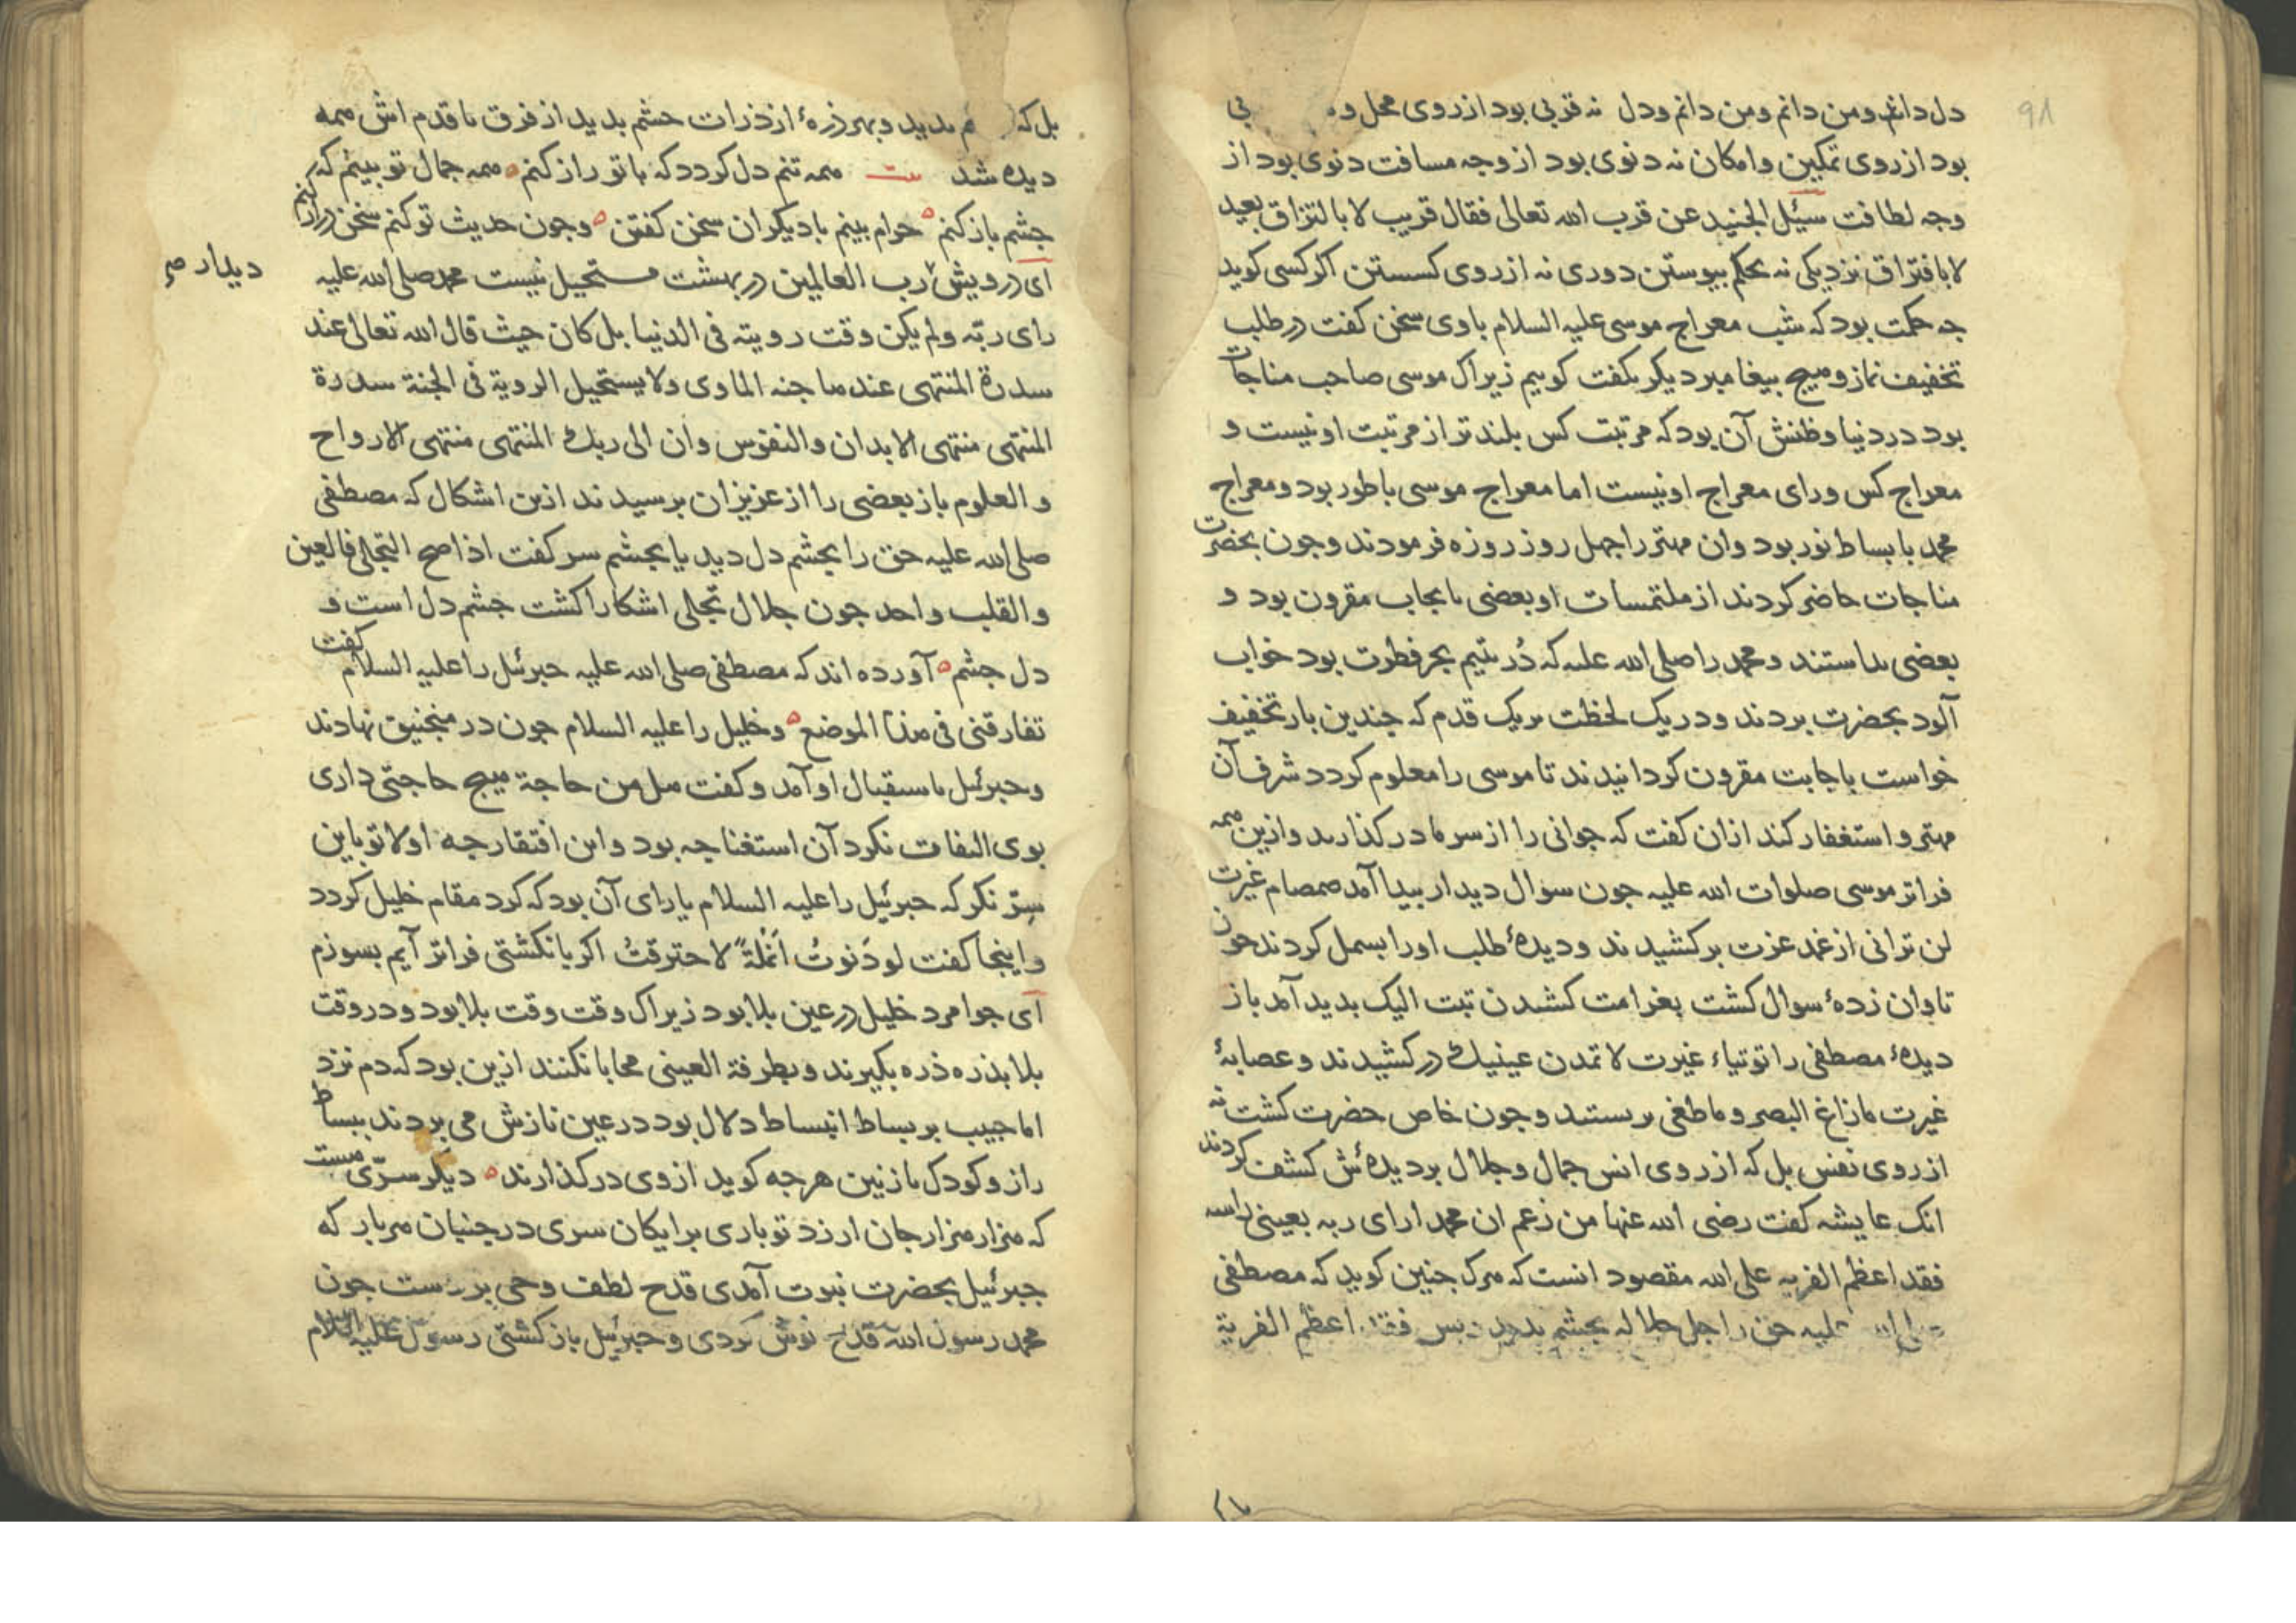 ۹۸
دل دانم و من دانم و من دانم و دل نه قربی بود از روی محل و بی
بود از روی تمکین و امکان نه دنوی بود از وجه مسافت دنوی بود از
وجه لطافت سئل الجنید عن قرب الله تعالی فقال قریب لا بالتزاق بعید
لا بافتراق نزدیکی نه بحکم پیوستن دوری نه از روی کسستن اکر کسی کوید
جه حکمت بود که شب معراج موسی علیه السلام با وی سخن کفت در طلب
تخفیف نماز و هیج بیغامبر دیکر نکفت کوییم زیراک موسی صاحب مناجات
بود در دنیا و ظنش آن بود که مرتبت کس بلندتر از مرتبت او نیست و
معراج کس ورای معراج او نیست اما معراج موسی با طور بود و معراج
محمد با بساط نور بود و ان مهتر را جهل روز روزه فرمودند و جون بحضرت
مناجات حاضر کردند از ملتمسات او بعضی بایجاب مقرون بود و
بعضی نداستند و محمد را صلی الله علیه که دُر یتیم بحر فطرت بود خواب
آلود بحضرت بردند و در یک لحظت بریک قدم که جندین بار تخفیف
خواست باجابت مقرون کردانیدند تا موسی را معلوم کردد شرف آن
مهتر و استغفار کند ازان کفت که جوانی را از سر ما در کذارند و ازین همه
فراتر موسی صلوات الله علیه جون سوال دیدار بیدا آمد صمصام غیرت
لن ترانی از غمد عزت برکشیدند و دیدهٔ طلب او را بسمل کردند جون
تاوان زدهٔ سوال کشت بغرامت کشیدن تبت الیک بدید آمد باز
دیدهٔ مصطفی را توتیاء غیرت لا تمدن عینیك در کشیدند و عصابهٔ
غیرت ما زاغ البصر و ما طغی بربستند و جون خاص حضرت کشت نه
از روی نفس بل که از روی انس جمال و جلال بر دیدهٔش کشف کردند
انک عایشه کفت رضی الله عنها من زعم ان محمدا رای ربه بعینی راسه
فقد اعظم الفریه علی الله مقصود انست که هرک جنین کوید که مصطفی
صلی الله علیه حق را جل جلاله بجشم بدید بس فقد اعظم الفریة
بل که بدید و بهر ذرهٔ از ذرات جشم بدید از فرق تا قدم اش همه
دیده شد بیت همه تنم دل کردد که با تو راز کنم همه جمال تو بینم که
جشم باز کنم حرام بینم با دیکران سخن کفتن و جون حدیث تو کنم سخن دراز کنم
ای درویش رب العالمین در بهشت مستحیل نیست محمد صلی الله علیه
دیدار صح
رای ربّه ولم یکن وقت رویته فی الدنیا بل کان حیث قال الله تعالی عند
سدرة المنتهی عندها جنه الماوی ولا یستحیل الرویة فی الجنة سدرة
المنتهی منتهی الابدان والنفوس وان الی ربك المنتهی منتهی الارواح
و العلوم باز بعضی را از عزیزان برسیدند ازین اشکال که مصطفی
صلی الله علیه حق را بجشم دل دید یا بجشم سر کفت اذا صح التجلی فالعین
والقلب واحد جون جلال تجلی اشکارا کشت جشم دل است و
دل جشم آورده اند که مصطفی صلی الله علیه جبرئیل را علیه السلام کفت
تفارقنی فی هذا الموضع و خلیل را علیه السلام جون در منجنیق نهادند
و جبرئیل باستقبال او آمد و کفت هل من حاجة هیج حاجتی داری
بوی التفات نکرد آن استغنا جه بود و این افتقار جه اولا تو باین
سِرّ نکر که جبرئیل را علیه السلام یارای آن بود که کرد مقام خلیل کردد
و اینجا کفت لو دَنوتُ اَنملةً لاحترقتُ اکر بانکشتی فراتر آیم بسوزم
ای جوامرد خلیل در عین بلا بود زیراک وقت وقت بلا بود و در وقت
بلا بذره ذره بکیرند و بطرفة العینی محابا نکنند ازین بود که دم نزد
اما حبیب بر بساط انبساط دلال بود در عین نازش می بردند ببساط
راز و کودک نازنین هرجه کوید از وی در کذارند دیکر سرّی هست
که هزار هزار جان ارزد تو باری برایکان سری در جنبان هربار که
جبرئیل بحضرت نبوت آمدی قدح لطف وحی بر دست جون
محمد رسول الله قدح نوش کردی و جبرئیل باز کشتی رسول علیه السلام